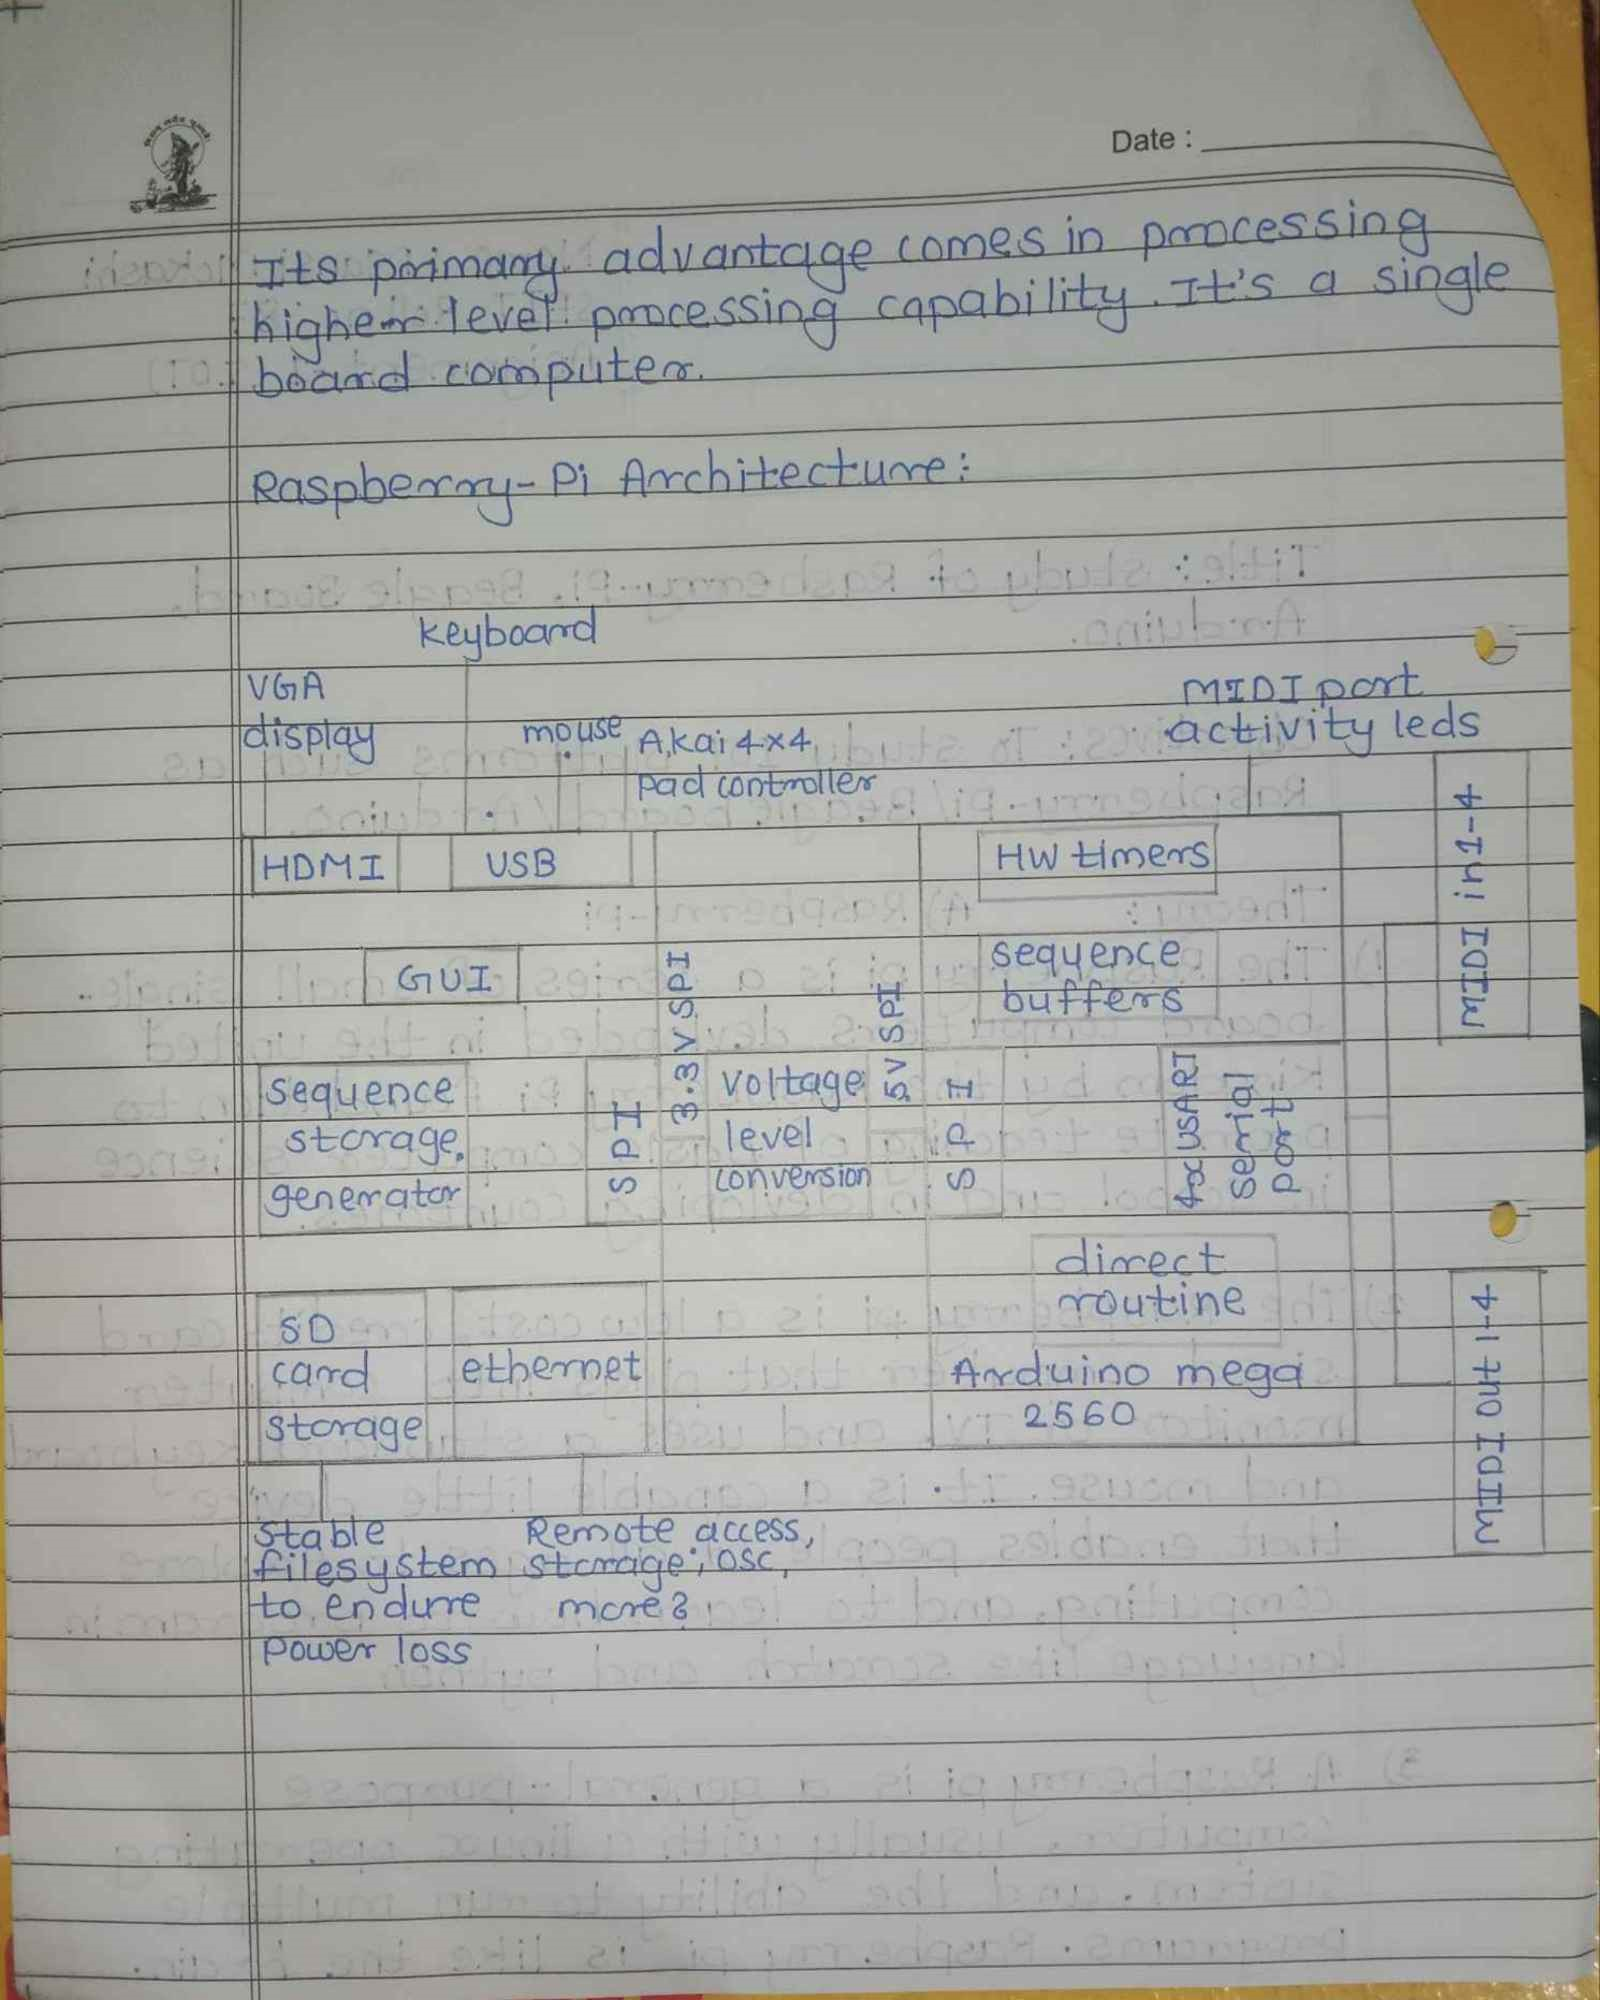 Date :
Its primary advantage comes in processing
higher level processing capability. It's a single
board computer.
Raspberry-Pi Architecture:
keyboard
VGA
display
mouse
Akai 4x4
pad controller
MIDI port
activity leds
HDMI
USB
HW timers
MIDI in 1-4
GUI
3.3V SPI
5V SPI
sequence
buffers
sequence
storage.
generator
SPI
voltage
level
conversion
SPI
4x USART
serial
port
direct
routine
SD
card
storage
ethernet
Arduino mega
2560
MIDI Out 1-4
Stable
filesystem
to endure
power loss
Remote access,
storage, OSC,
more?